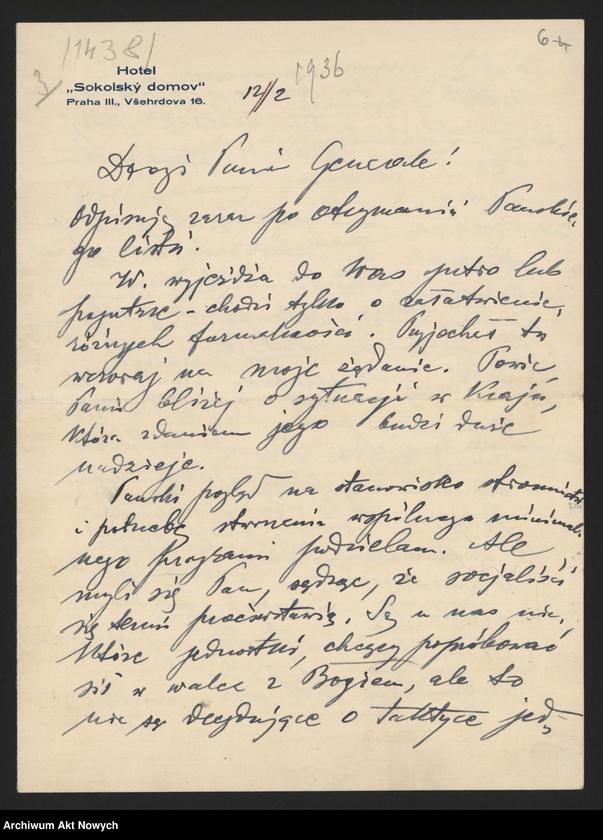 /1438/
3/
64
Hotel
„Sokolský domov“
Praha III., Všehrdova 16.
12/2
1936
Drogi Panie Generale!
Odpisuję zaraz po otrzymaniu Pańskie-
go listu.
W. wyjeżdża do Was jutro lub
pojutrze - chodzi tylko o załatwienie
różnych formalności. Przyjechał tu
wczoraj na moje żądanie. Powie
Panu bliżej o sytuacji w Kraju,
która zdaniem jego budzi duże
nadzieje.
Pański pogląd na stanowisko stronnictw
i potrzebę stworzenia wspólnego minimal-
nego programu podzielam. Ale
myli się Pan, sądząc, że socjaliści
się temu przeciwstawią. Są u nas nie-
które jednostki, chcące popróbować
sił w walce z Bogiem, ale to
nie są decydujące o taktyce jed-
Archiwum Akt Nowych